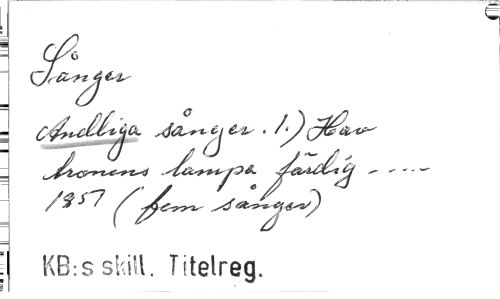 Sånger
Andliga sånger. 1.) Hav
tronens lampa färdig -----
1857 (fem sånger)
KB:s skill. Titelreg.